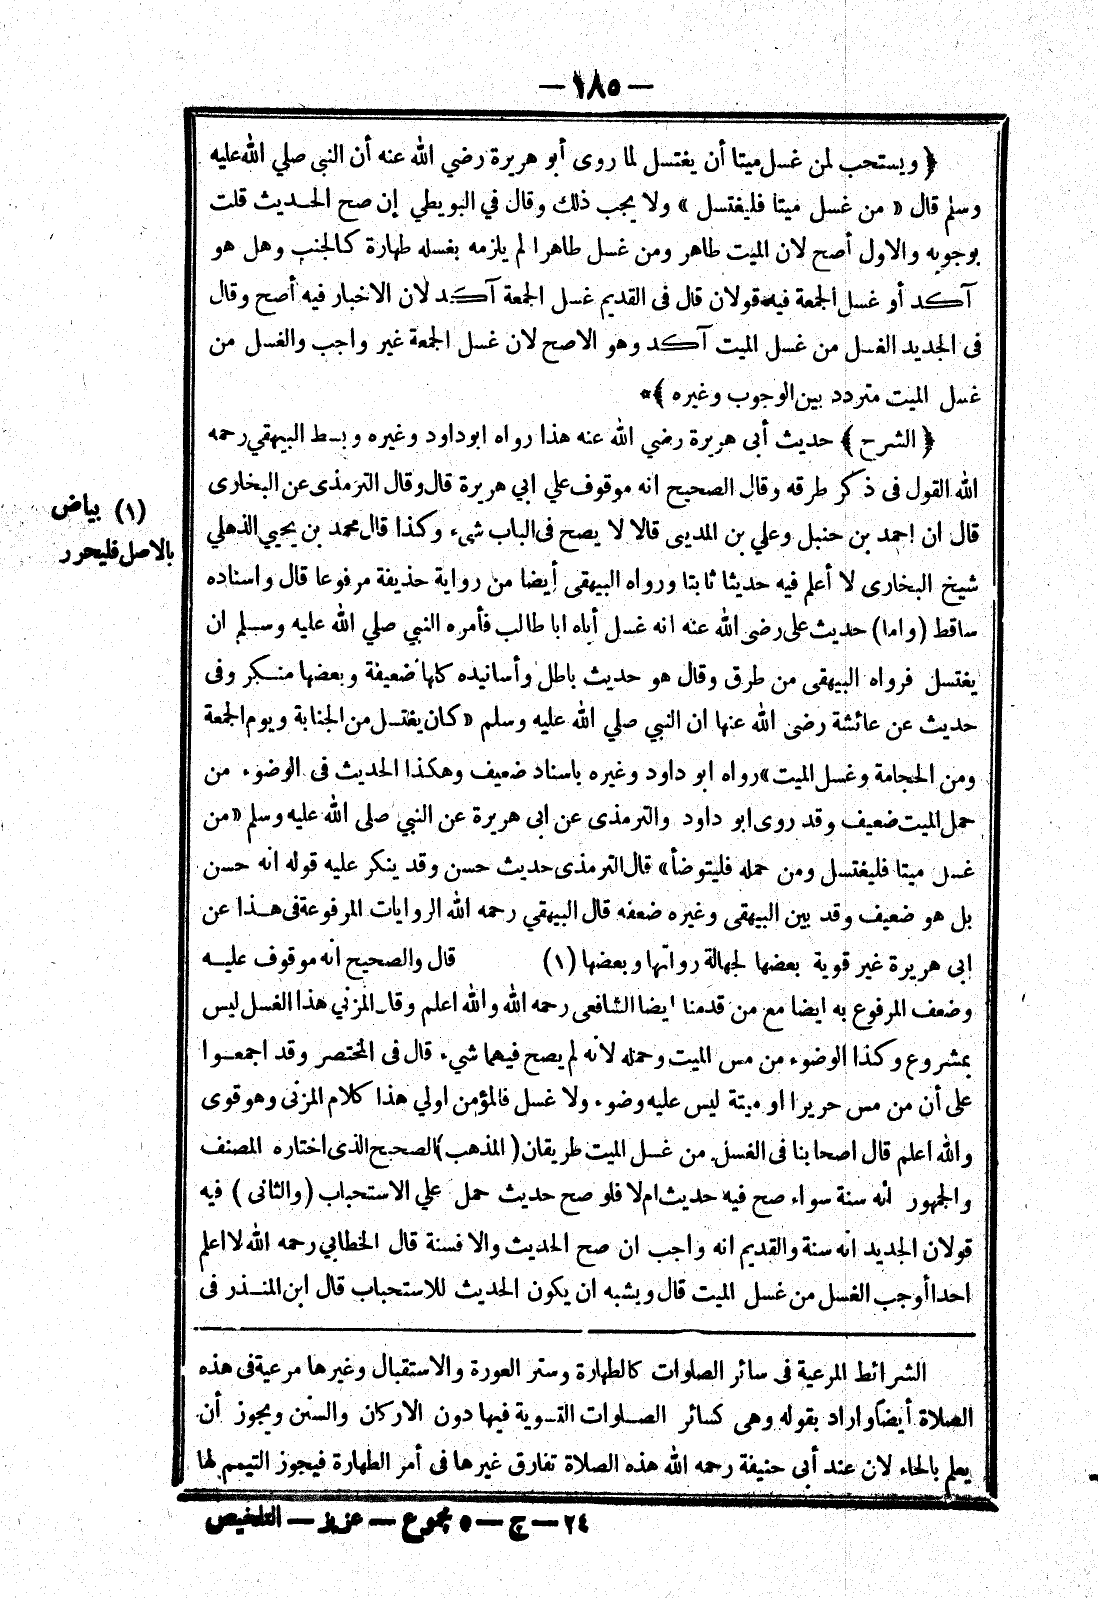 — ١٨٥ —
﴿ ويستحب لمن غسل ميتا أن يغتسل لما روى أبو هريرة رضي الله عنه أن النبى صلي الله عليه
وسلم قال « من غسل ميتا فليغتسل » ولا يجب ذلك وقال في البويطي إن صح الحديث قلت
بوجوبه والاول أصح لان الميت طاهر ومن غسل طاهرا لم يلزمه بغسله طهارة كالجنب وهل هو
آكد أو غسل الجمعة فيه قولان قال فى القديم غسل الجمعة آكد لان الاخبار فيه أصح وقال
فى الجديد الغسل من غسل الميت آكد وهو الاصح لان غسل الجمعة غير واجب والغسل من
غسل الميت متردد بين الوجوب وغيره ﴾*
﴿ الشرح ﴾ حديث أبى هريرة رضي الله عنه هذا رواه ابوداود وغيره وبسط البيهقي رحمه
الله القول فى ذكر طرقه وقال الصحيح انه موقوف علي ابي هريرة قال وقال الترمذى عن البخارى
قال ان احمد بن حنبل وعلي بن المدينى قالا لا يصح فى الباب شىء وكذا قال محمد بن يحيي الذهلي
شيخ البخارى لا أعلم فيه حديثا ثابتا ورواه البيهقى أيضا من رواية حذيفة مرفوعا قال واسناده
ساقط (واما) حديث على رضى الله عنه انه غسل أباه ابا طالب فأمره النبي صلي الله عليه وسلم ان
يغتسل فرواه البيهقى من طرق وقال هو حديث باطل وأسانيده كلها ضعيفة وبعضها منكر وفى
حديث عن عائشة رضى الله عنها ان النبي صلي الله عليه وسلم « كان يغتسل من الجنابة ويوم الجمعة
ومن الحجامة وغسل الميت » رواه ابو داود وغيره باسناد ضعيف وهكذا الحديث فى الوضوء من
حمل الميت ضعيف وقد روى ابو داود والترمذى عن ابى هريرة عن النبي صلى الله عليه وسلم « من
غسل ميتا فليغتسل ومن حمله فليتوضأ » قال الترمذى حديث حسن وقد ينكر عليه قوله انه حسن
بل هو ضعيف وقد بين البيهقى وغيره ضعفه قال البيهقي رحمه الله الروايات المرفوعة فى هذا عن
ابى هريرة غير قوية بعضها لجهالة رواتها وبعضها (١) قال والصحيح انه موقوف عليه
وضعف المرفوع به ايضا مع من قدمنا ايضا الشافعى رحمه الله والله اعلم وقال المزني هذا الغسل ليس
بمشروع وكذا الوضوء من مس الميت وحمله لانه لم يصح فيهما شيء قال فى المختصر وقد اجمعوا
على أن من مس حريرا او ميتة ليس عليه وضوء ولا غسل فالمؤمن اولي هذا كلام المزنى وهو قوى
والله اعلم قال اصحابنا فى الغسل من غسل الميت طريقان (المذهب) الصحيح الذى اختاره المصنف
والجمهور انه سنة سواء صح فيه حديث ام لا فلو صح حديث حمل علي الاستحباب (والثانى) فيه
قولان الجديد انه سنة والقديم انه واجب ان صح الحديث والا فسنة قال الخطابي رحمه الله لا اعلم
احدا أوجب الغسل من غسل الميت قال ويشبه ان يكون الحديث للاستحباب قال ابن المنذر فى
(١) بياض
بالاصل فليحرر
الشرائط المرعية فى سائر الصلوات كالطهارة وستر العورة والاستقبال وغيرها مرعية فى هذه
الصلاة أيضاً واراد بقوله وهى كسائر الصلوات التسوية فيها دون الاركان والسنن ويجوز أن
يعلم بالحاء لان عند أبى حنيفة رحمه الله هذه الصلاة تفارق غيرها فى أمر الطهارة فيجوز التيمم لها
٢٤ — ج — ٥ مجموع — عزيز — التلخيص